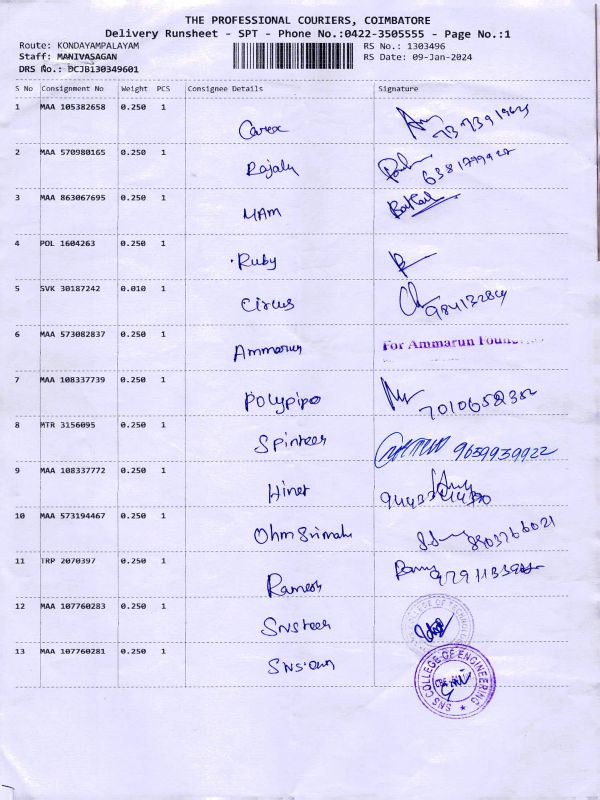 THE PROFESSIONAL COURIERS, COIMBATORE
Delivery Runsheet - SPT - Phone No.:0422-3505555 - Page No.:1
Route: KONDAYAMPALAYAM RS No.: 1303496
Staff: MANIVASAGAN RS Date: 09-Jan-2024
DRS No.: DCJB130349601
S No Consignment No Weight PCS Consignee Details Signature
1 MAA 105382658 0.250 1
Carex
2 MAA 570980165 0.250 1
6381799927
3 MAA 863067695 0.250 1
MAM
4 POL 1604263 0.250 1
Ruby
5 SVK 30187242 0.010 1
Circus
6 MAA 573082837 0.250 1
Ammarun For Ammarun
7 MAA 108337739 0.250 1
Polypipo
8 MTR 3156095 0.250 1
Spinteer 9659939922
9 MAA 108337772 0.250 1
Hinet
10 MAA 573194467 0.250 1
Ohm 8903766021
11 TRP 2070397 0.250 1
Ramesh
12 MAA 107760283 0.250 1
COLLEGE OF TECHNOLOGY
13 MAA 107760281 0.250 1
SNS COLLEGE OF ENGINEERING